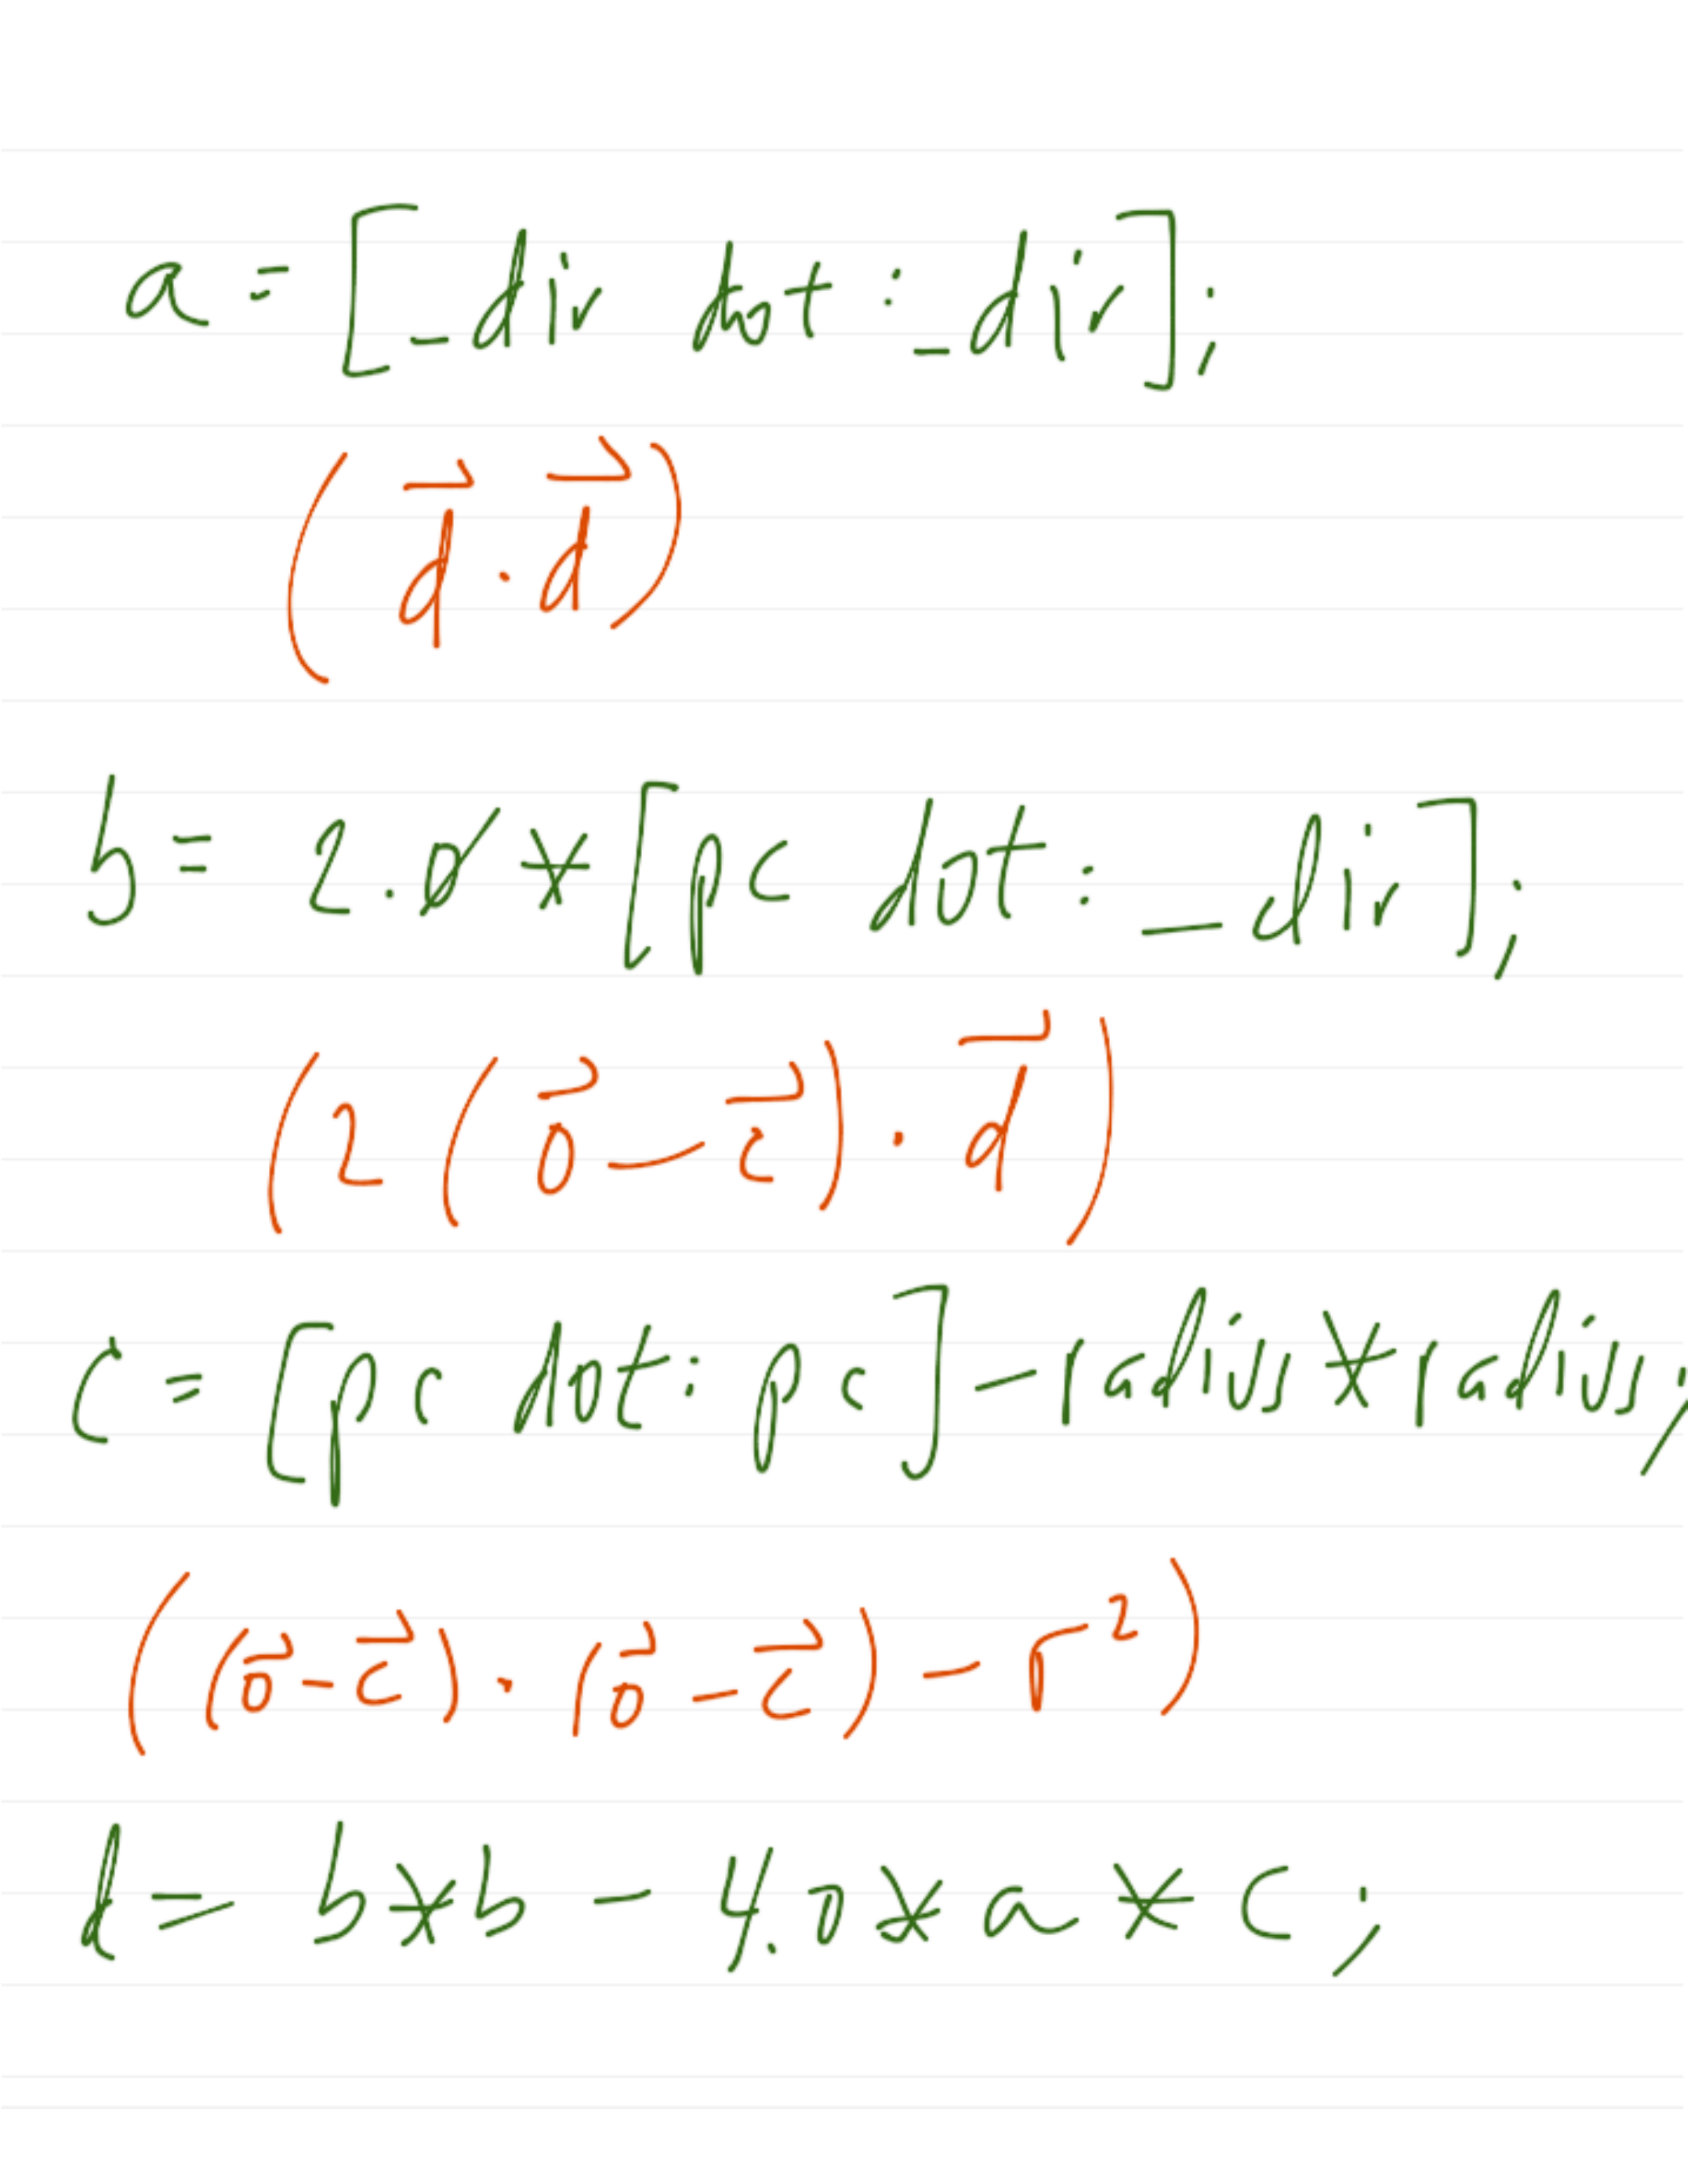 a = [_dir dot: _dir];
(d⃗ · d⃗)
b = 2.0 * [pc dot: _dir];
(2(o⃗ - c⃗) · d⃗)
c = [pc dot: pc] - radius * radius;
((o⃗ - c⃗) · (o⃗ - c⃗) - r²)
d = b*b - 4.0 * a * c;